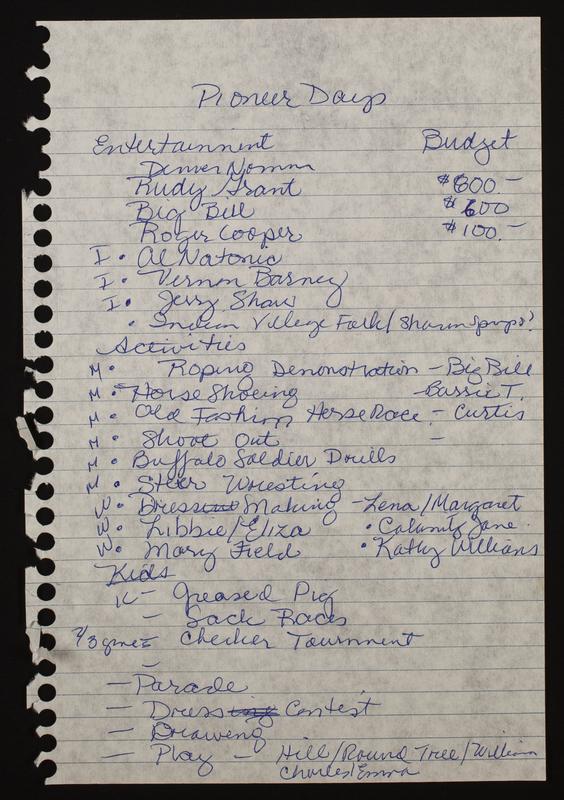 Pioneer Days
Entertainment Budget
Denver Nomm
Rudy Grant $800.—
Big Bill $600
Roger Cooper $100.—
I • Al Natonic
I • Vernon Barney
I • Jerry Shaw
• Indian Village Folk/Sharon Springs?
Activities
M • Roping Demonstration - Big Bill
M • Horse Shoeing - Barrie T.
M • Old Fashion Horse Race - Curtis
M • Shoot Out -
M • Buffalo Soldier Drills
M • Steer Wresting
W • Dress Making - Lena/Margaret
W • Libbie/Eliza • Calamity Jane
W • Mary Field • Kathy Williams
Kids
K - Greased Pig
- Sack Races
2/3 games - Checker Tournment
-
- Parade
- Dress Contest
- Drawing
- Play - Hill/Round Tree/William
Charles/Emma